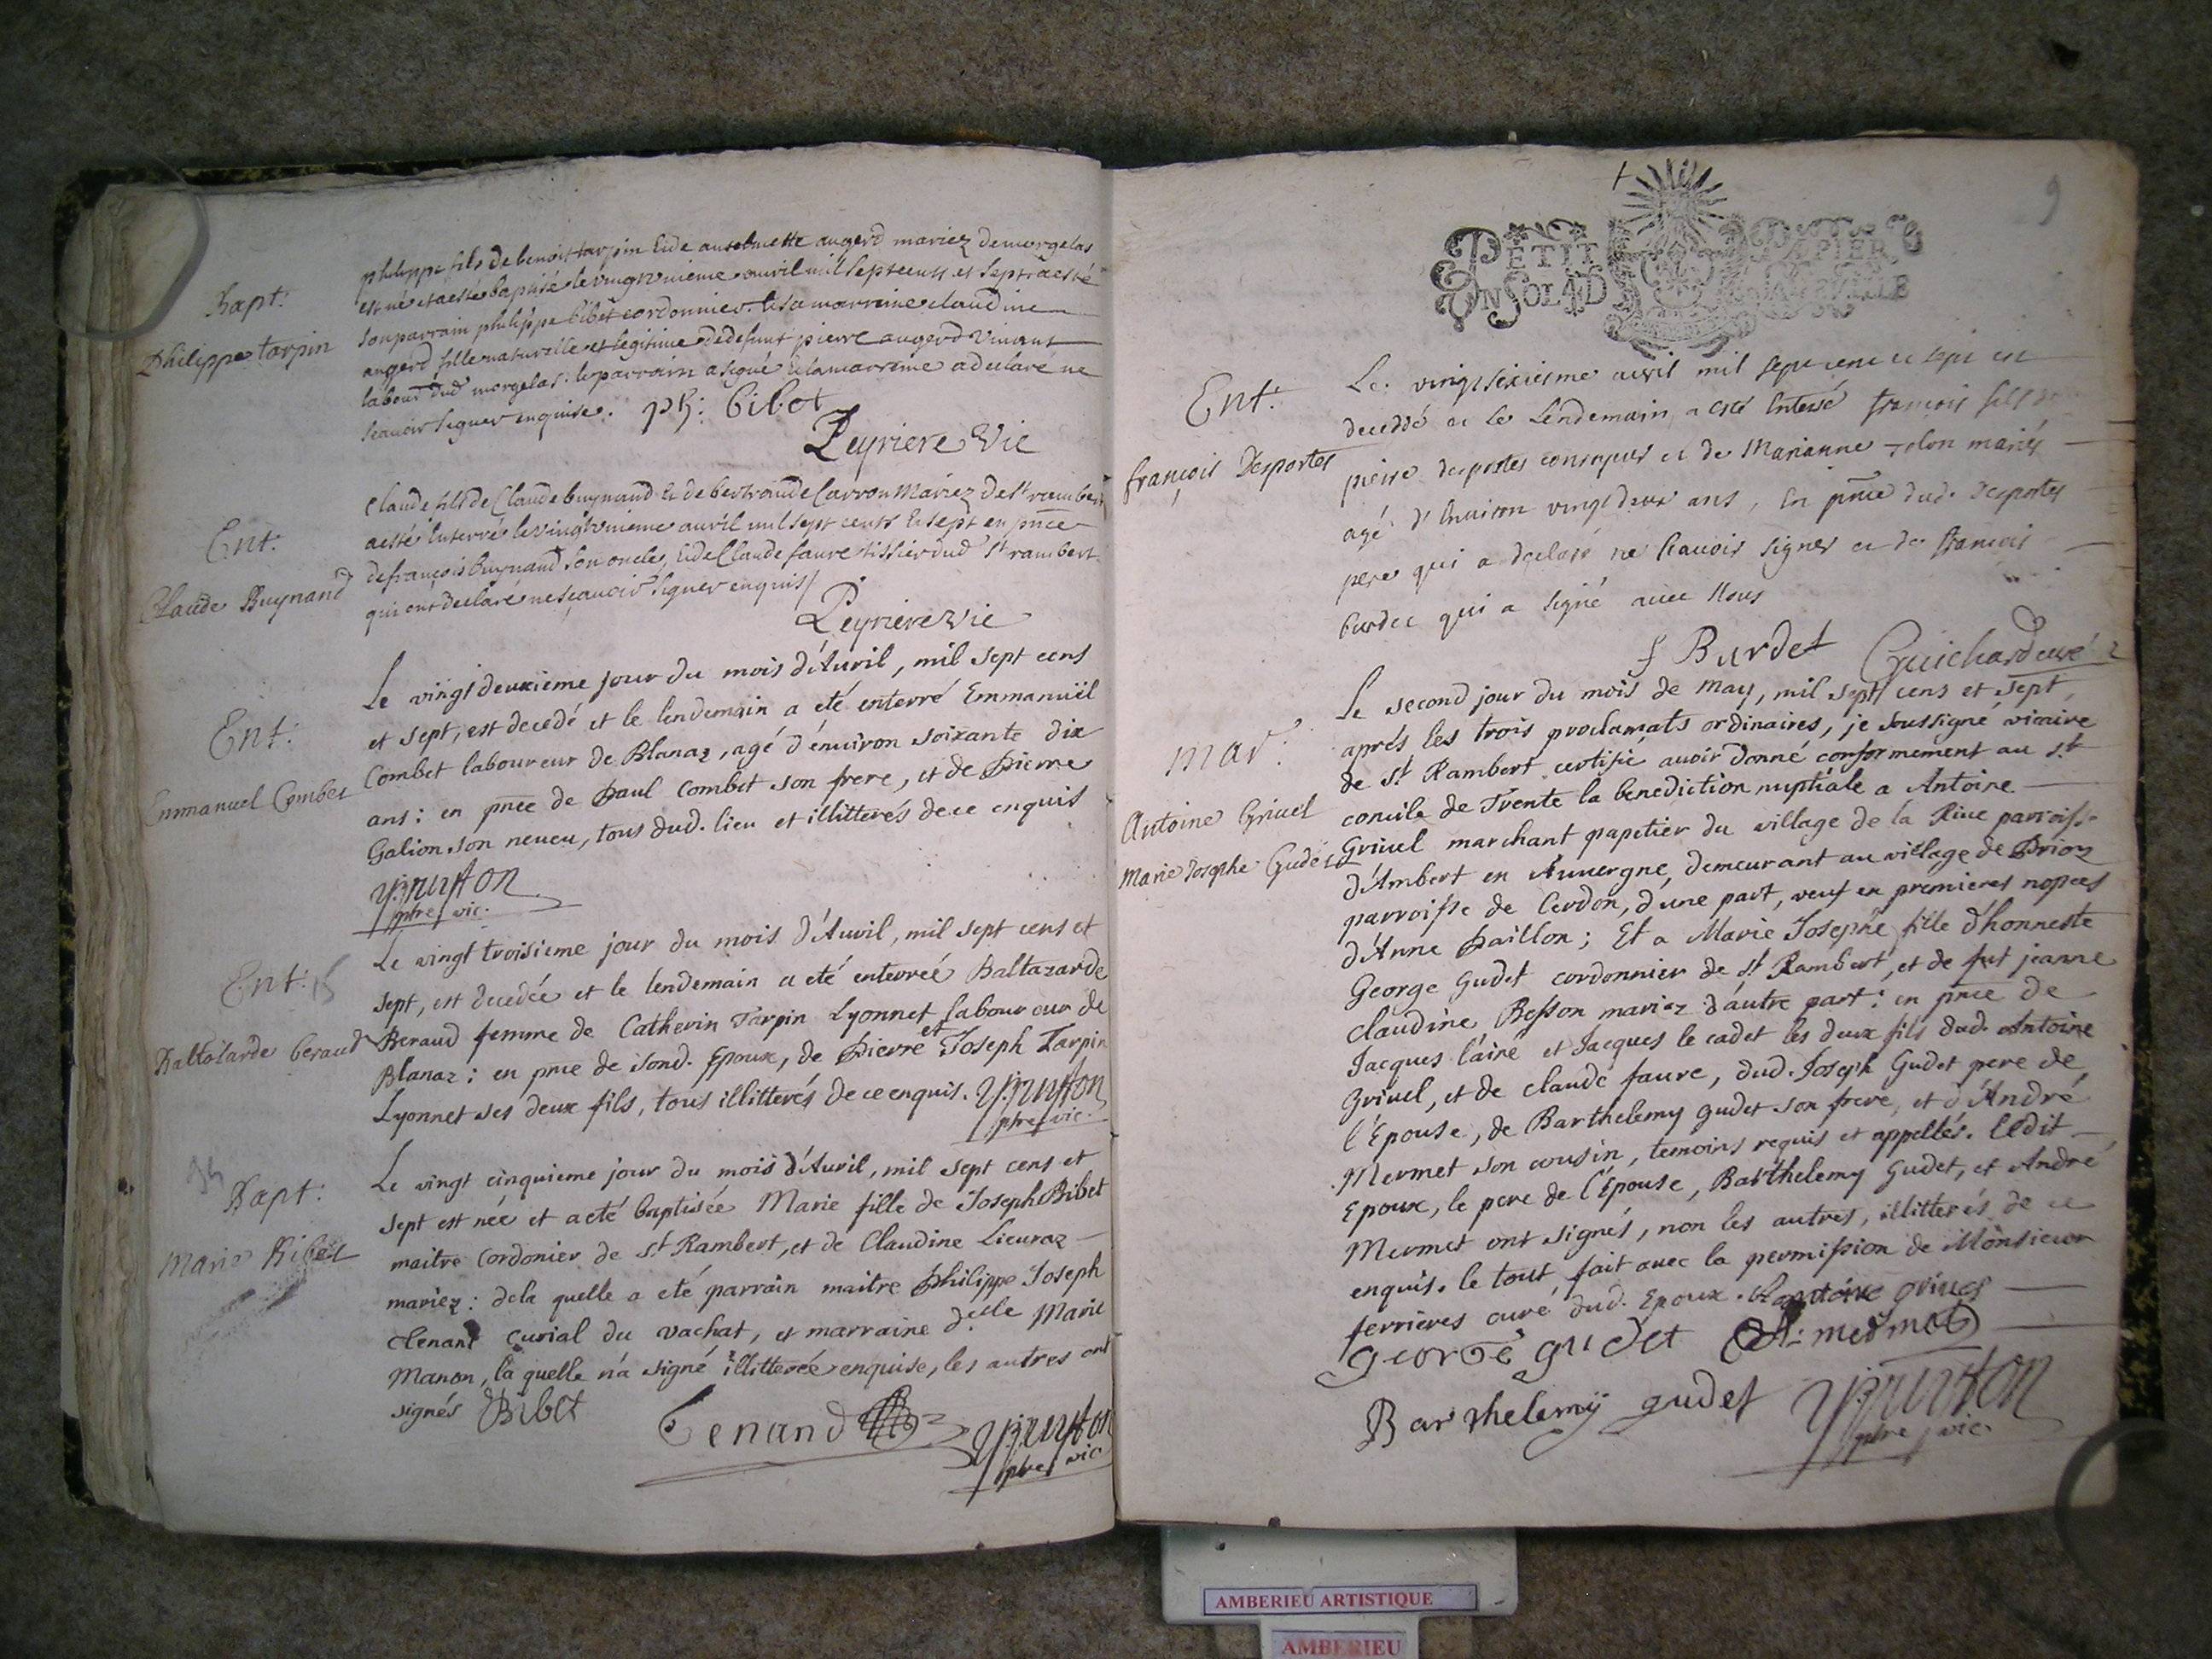 Bapt:
Philippe tarpin
philippe fils de benoist tarpin & de anthelmette augerd mariez de morgelas
est né et a esté baptisé le vingt unieme avril mil sept cents et sept, a esté
son parrain philippe bibet cordonnier & sa marraine claudine
augerd fille naturelle et legitime de defunt pierre augerd vivant
labour dud morgelas. le parrain a signé & la marreine a declaré ne
scavoir signer enquise. ph: bibet
Peyriere Vic
Ent:
Claude Buynand
Claude fils de Claude buynand & de bertrande Carron Mariez de st rambert
a esté Enterré le vingt unieme auril mil sept cents & sept en pnce
de françois Buynand son oncle, & de Claude faure tissier dud st rambert.
qui ont declaré ne sçauoir signer enquis/
Peyriere Vic
Ent:
Emmanuel Combet
Le vingt deuxieme jour du mois d'Auril, mil sept cens
et sept, est decedé et le lendemain a eté enterré Emmanuël
Combet laboureur de Blanaz, agé d'enuiron soixante dix
ans: en pnce de Paul Combet son frere, et de Pierre
Galion son neueu, tous dud. lieu et illitterés de ce enquis
pbre vic.
Ent:
Baltazarde beraud
Le vingt troisieme jour du mois d'Auril, mil sept cens et
sept, est decedée et le lendemain a eté enterreé Baltazarde
Beraud femme de Catherin Tarpin Lyonnet laboureur de
Blanaz: en pnce de sond. Epoux, de Pierre et Joseph Tarpin
Lyonnet ses deux fils, tous illitterés de ce enquis.
pbre vic.
Bapt:
Marie Bibet
Le vingt cinquieme jour du mois d'Auril, mil sept cens et
sept est née et a eté baptisée Marie fille de Joseph Bibet
maitre Cordonier de st Rambert, et de Claudine Lieuraz
mariez: de la quelle a eté parrain maitre Philippe Joseph
Tenand curial du vachat, et marraine d.elle Marie
Manon, la quelle n'a signé illitterée enquise, les autres ont
signés Bibet
Tenand
pbre vic
9
PETIT PAPIER
UN SOL 4 D
Ent:
françois Desportes
Le vingt sixiesme avril mil sept cent et sept est
decedé et le Lendemain a esté Enterré françois fils de
pierre desportes et de Marianne mariés
agé d'Enuiron vingt deux ans, En pnce dud. Desportes
pere qui a declaré ne scauoir signer et de françois
burdet qui a signé auec Nous
f Burdet Guichard curé
Mar:
Antoine Griuel
Marie Josephe Gudet
Le second jour du mois de may, mil sept cens et sept,
aprés les trois proclamats ordinaires, je soussigné vicaire
de st Rambert certifie auoir donné conformement au st
concile de Trente la benediction nuptiale a Antoine
Griuel marchant papetier du village de la Riue parroisse
d'Ambert en Auuergne, demeurant au village de Prion
parroisse de Cerdon, d'une part, veuf en premieres nopces
d'Anne Paillon; Et a Marie Josephe fille d'honneste
George Gudet cordonnier de st Rambert, et de fut jeanne
claudine Besson mariez d'autre part: en pnce de
Jacques l'ainé et Jacques le cadet les deux fils dud. Antoine
Griuel, et de claude faure, dud. Joseph Gudet pere de
l'Epouse, de Barthelemy gudet son frere, et d'André
Mermet son cousin, temoins requis et appellés. Ledit
Epoux, le pere de l'Epouse, Barthelemy Gudet, et André
Mermet ont signés, non les autres, illitterés de ce
enquis. le tout fait auec la permission de Monsieur
ferrieres curé dud. Epoux. Antoine griuel
george gudet A: mermet
Barthelemy gudet
pbre vic.
AMBERIEU ARTISTIQUE
AMBERIEU